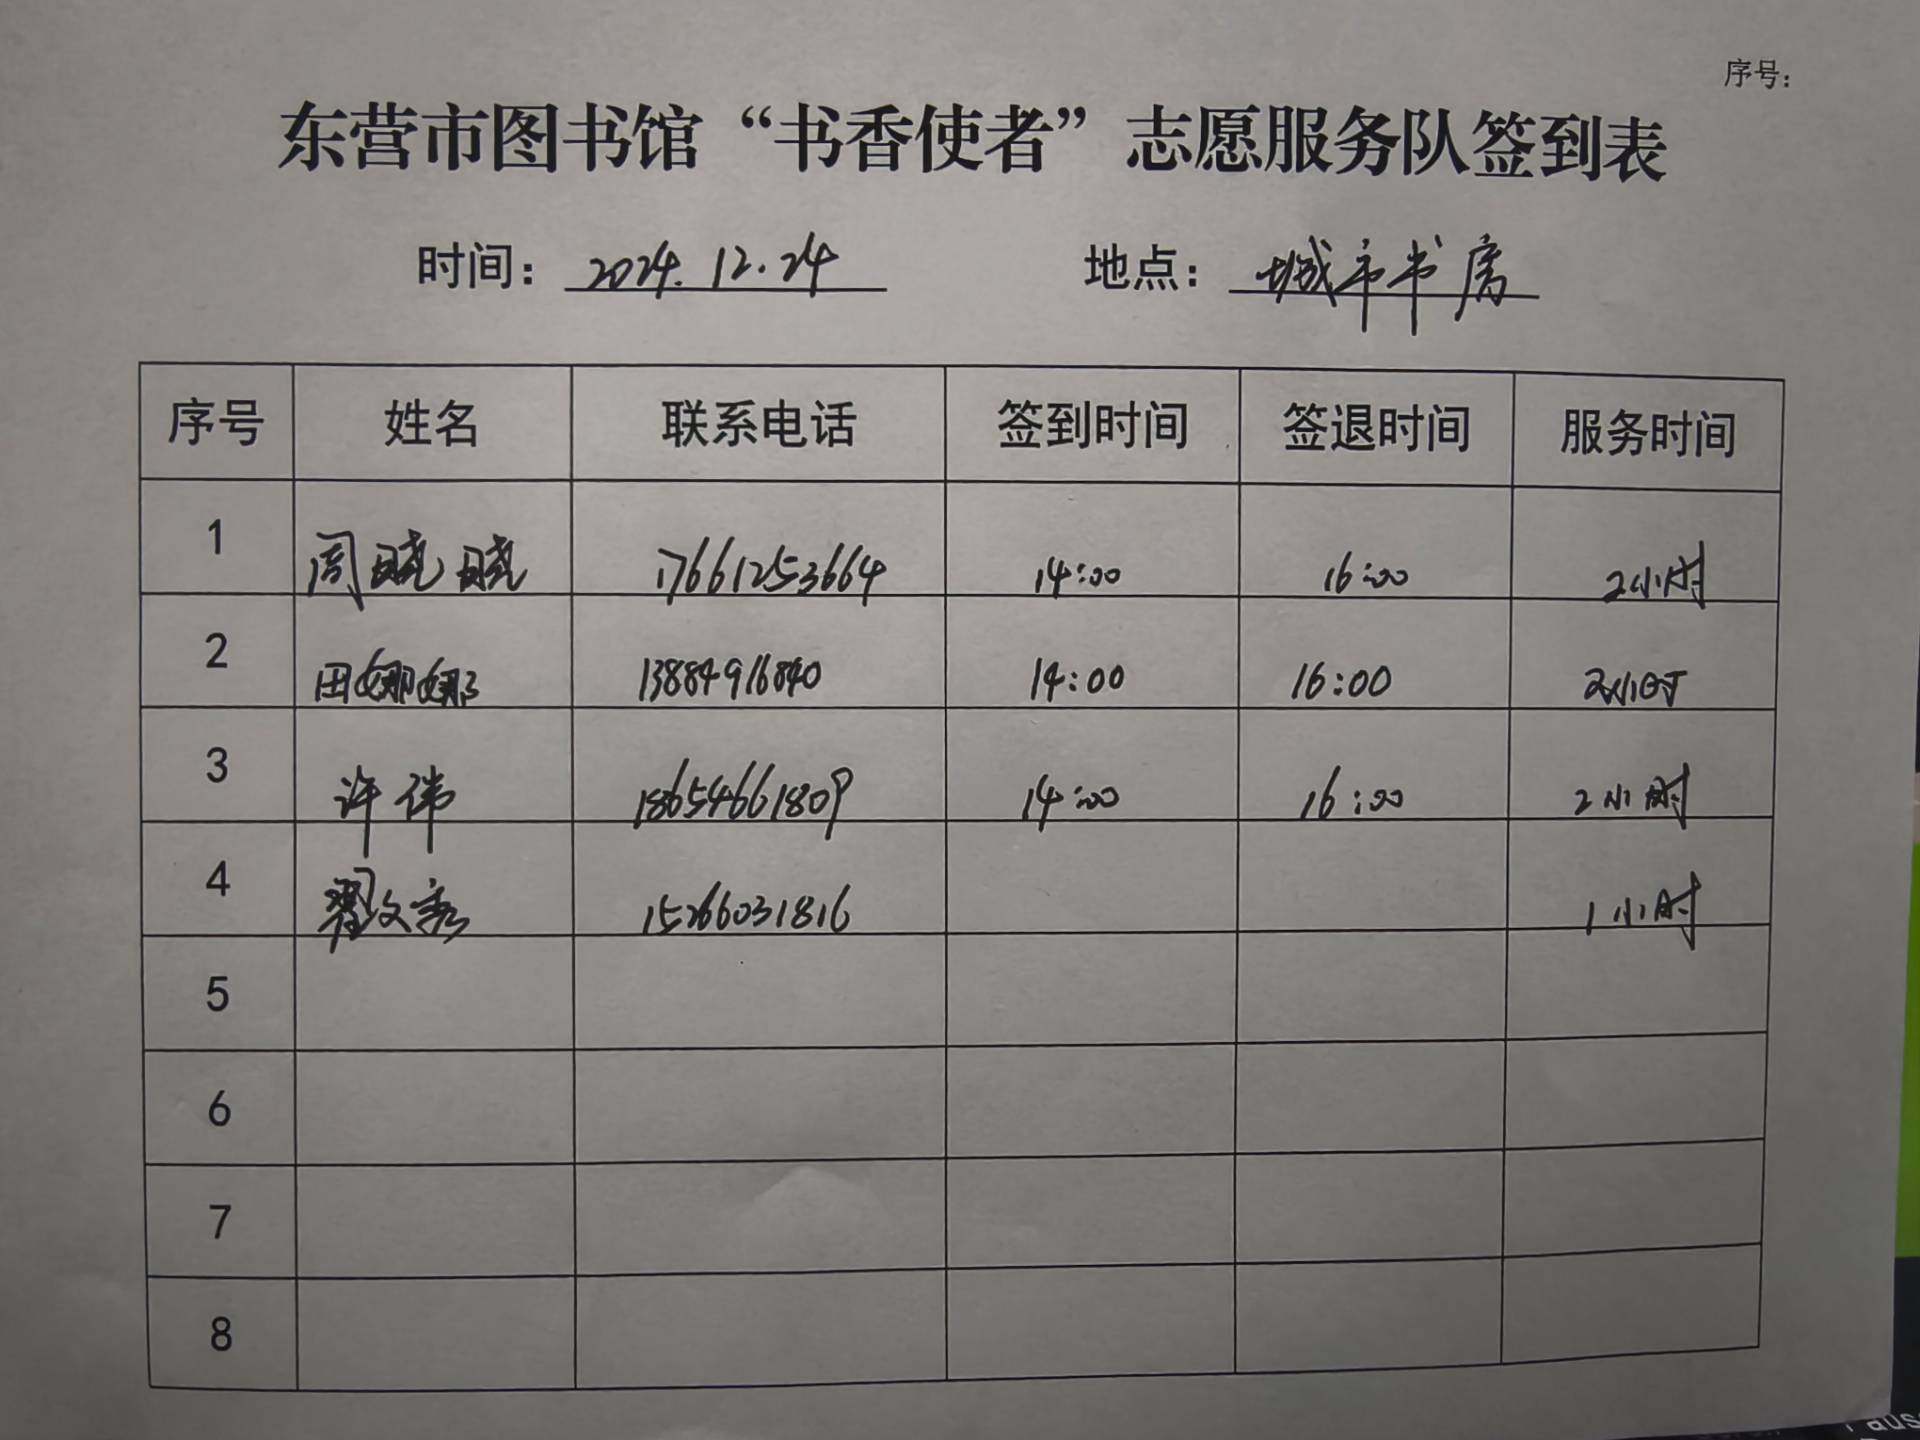 序号：
东营市图书馆“书香使者”志愿服务队签到表
时间：2024.12.24 地点：城市书房
序号 姓名 联系电话 签到时间 签退时间 服务时间
1 周晓晓 17661253664 14:00 16:00 2小时
2 田娜娜 13884916840 14:00 16:00 2小时
3 许伟 18654661809 14:00 16:00 2小时
4 翟文秀 15266031816 1小时
5
6
7
8